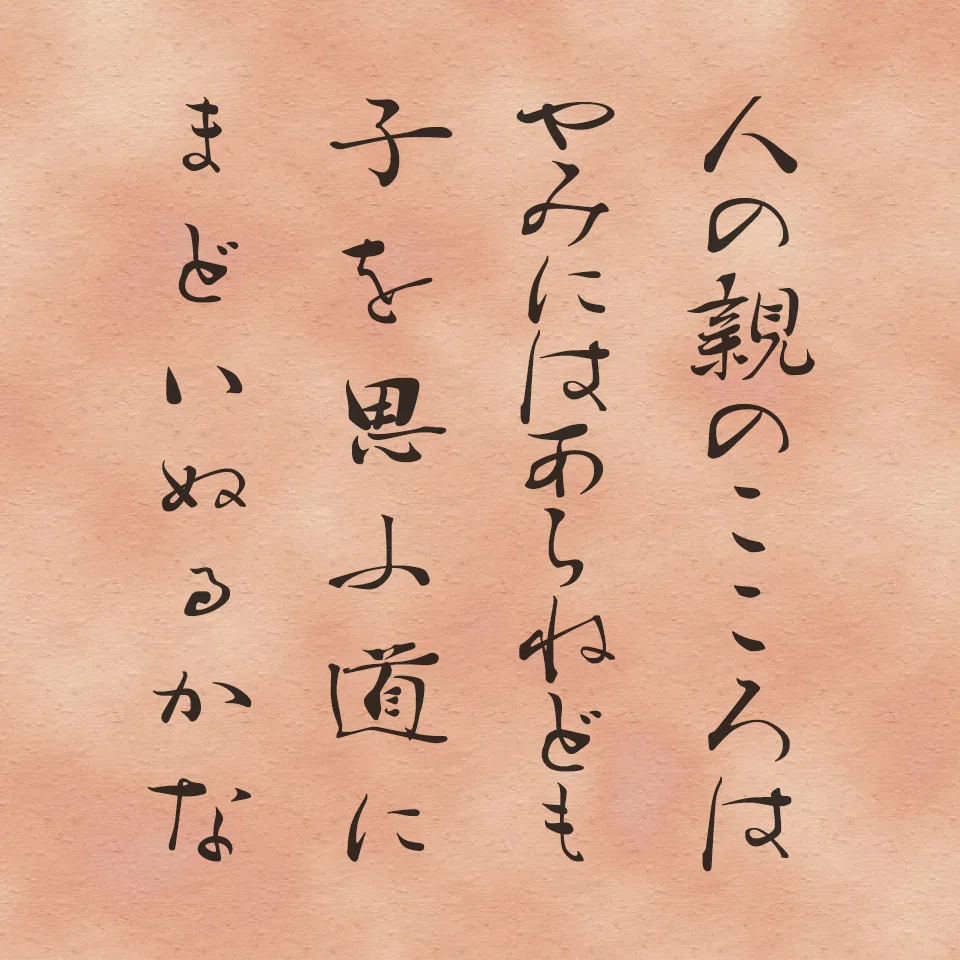 人の親のこころは
やみにはあらねども
子を思ふ道に
まどいぬるかな